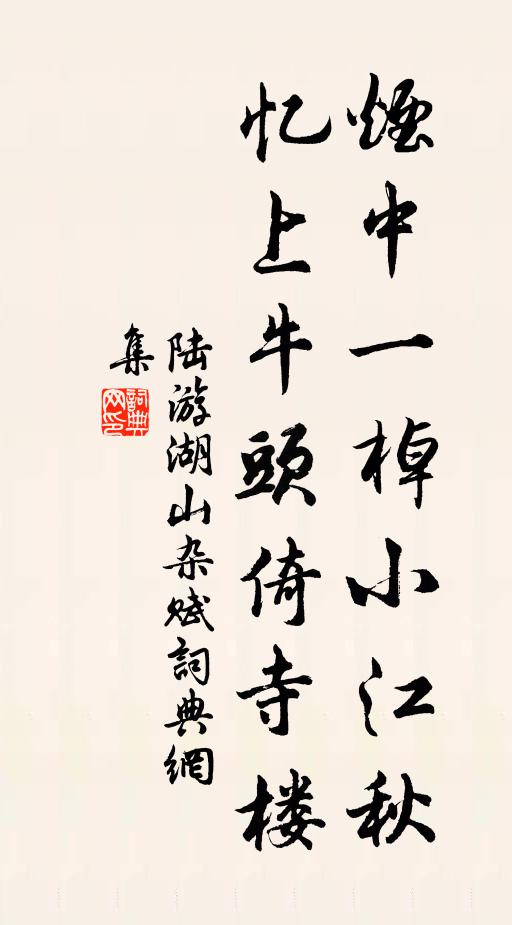 煙中一棹小江秋
忆上牛頭倚寺楼
陆游湖山杂赋詞典網
集
詞典
网印